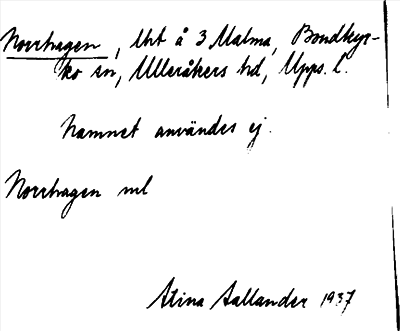 Norrhagen, lht å 3 Malma, Bondkyr-
ko sn, Ulleråkers hd, Upps. l.
Namnet användes ej.
Norrhagen ml
Stina Sallander 1937